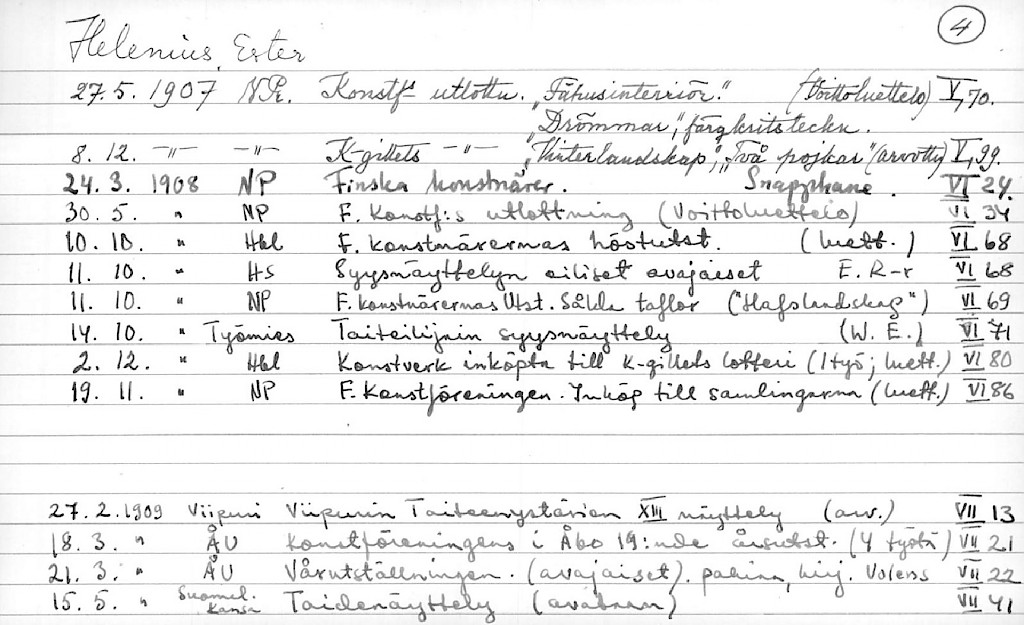 4
Helenius, Ester
27.5. 1907 NPr. Konstf- utlottn. "Fähusinteriör." (Voittoluettelo) V, 70.
"Drömmar", färgkritsteckn.
8. 12. -"- -"- K-gillets -"- "Vinterlandskap", "Två pojkar" (arvottu) V, 99.
24. 3. 1908 NP Finska konstnärer. Snapphane. VI 24
30. 5. " NP F. Konstf:s utlottning (Voittoluettelo) VI 34
10. 10. " Hbl F. konstnärernas höstutst. (luett.) VI 68
11. 10. " HS Syysnäyttelyn eiliset avajaiset E. R-r VI 68
11. 10. " NP F. konstnärernas Utst. Sålda taflor ("Hafslandskap") VI 69
14. 10. " Työmies Taiteilijain syysnäyttely (W. E.) VI 71
2. 12. " Hbl Konstverk inköpta till K-gillets lotteri (1 työ; luett.) VI 80
19. 11. " NP F. Konstföreningen. Inköp till samlingarna (luett.) VI 86
27. 2. 1909 Viipuri Viipurin Taiteenystävien XIII näyttely (arv.) VII 13
18. 3. " ÅU Konstföreningens i Åbo 19:nde årsutst. (4 työtä) VII 21
21. 3. " ÅU Vårutställningen. (avajaiset). pakina, kirj. Volens VII 22
15. 5. " Suomal. Kansa Taidenäyttely (avataan) VII 41